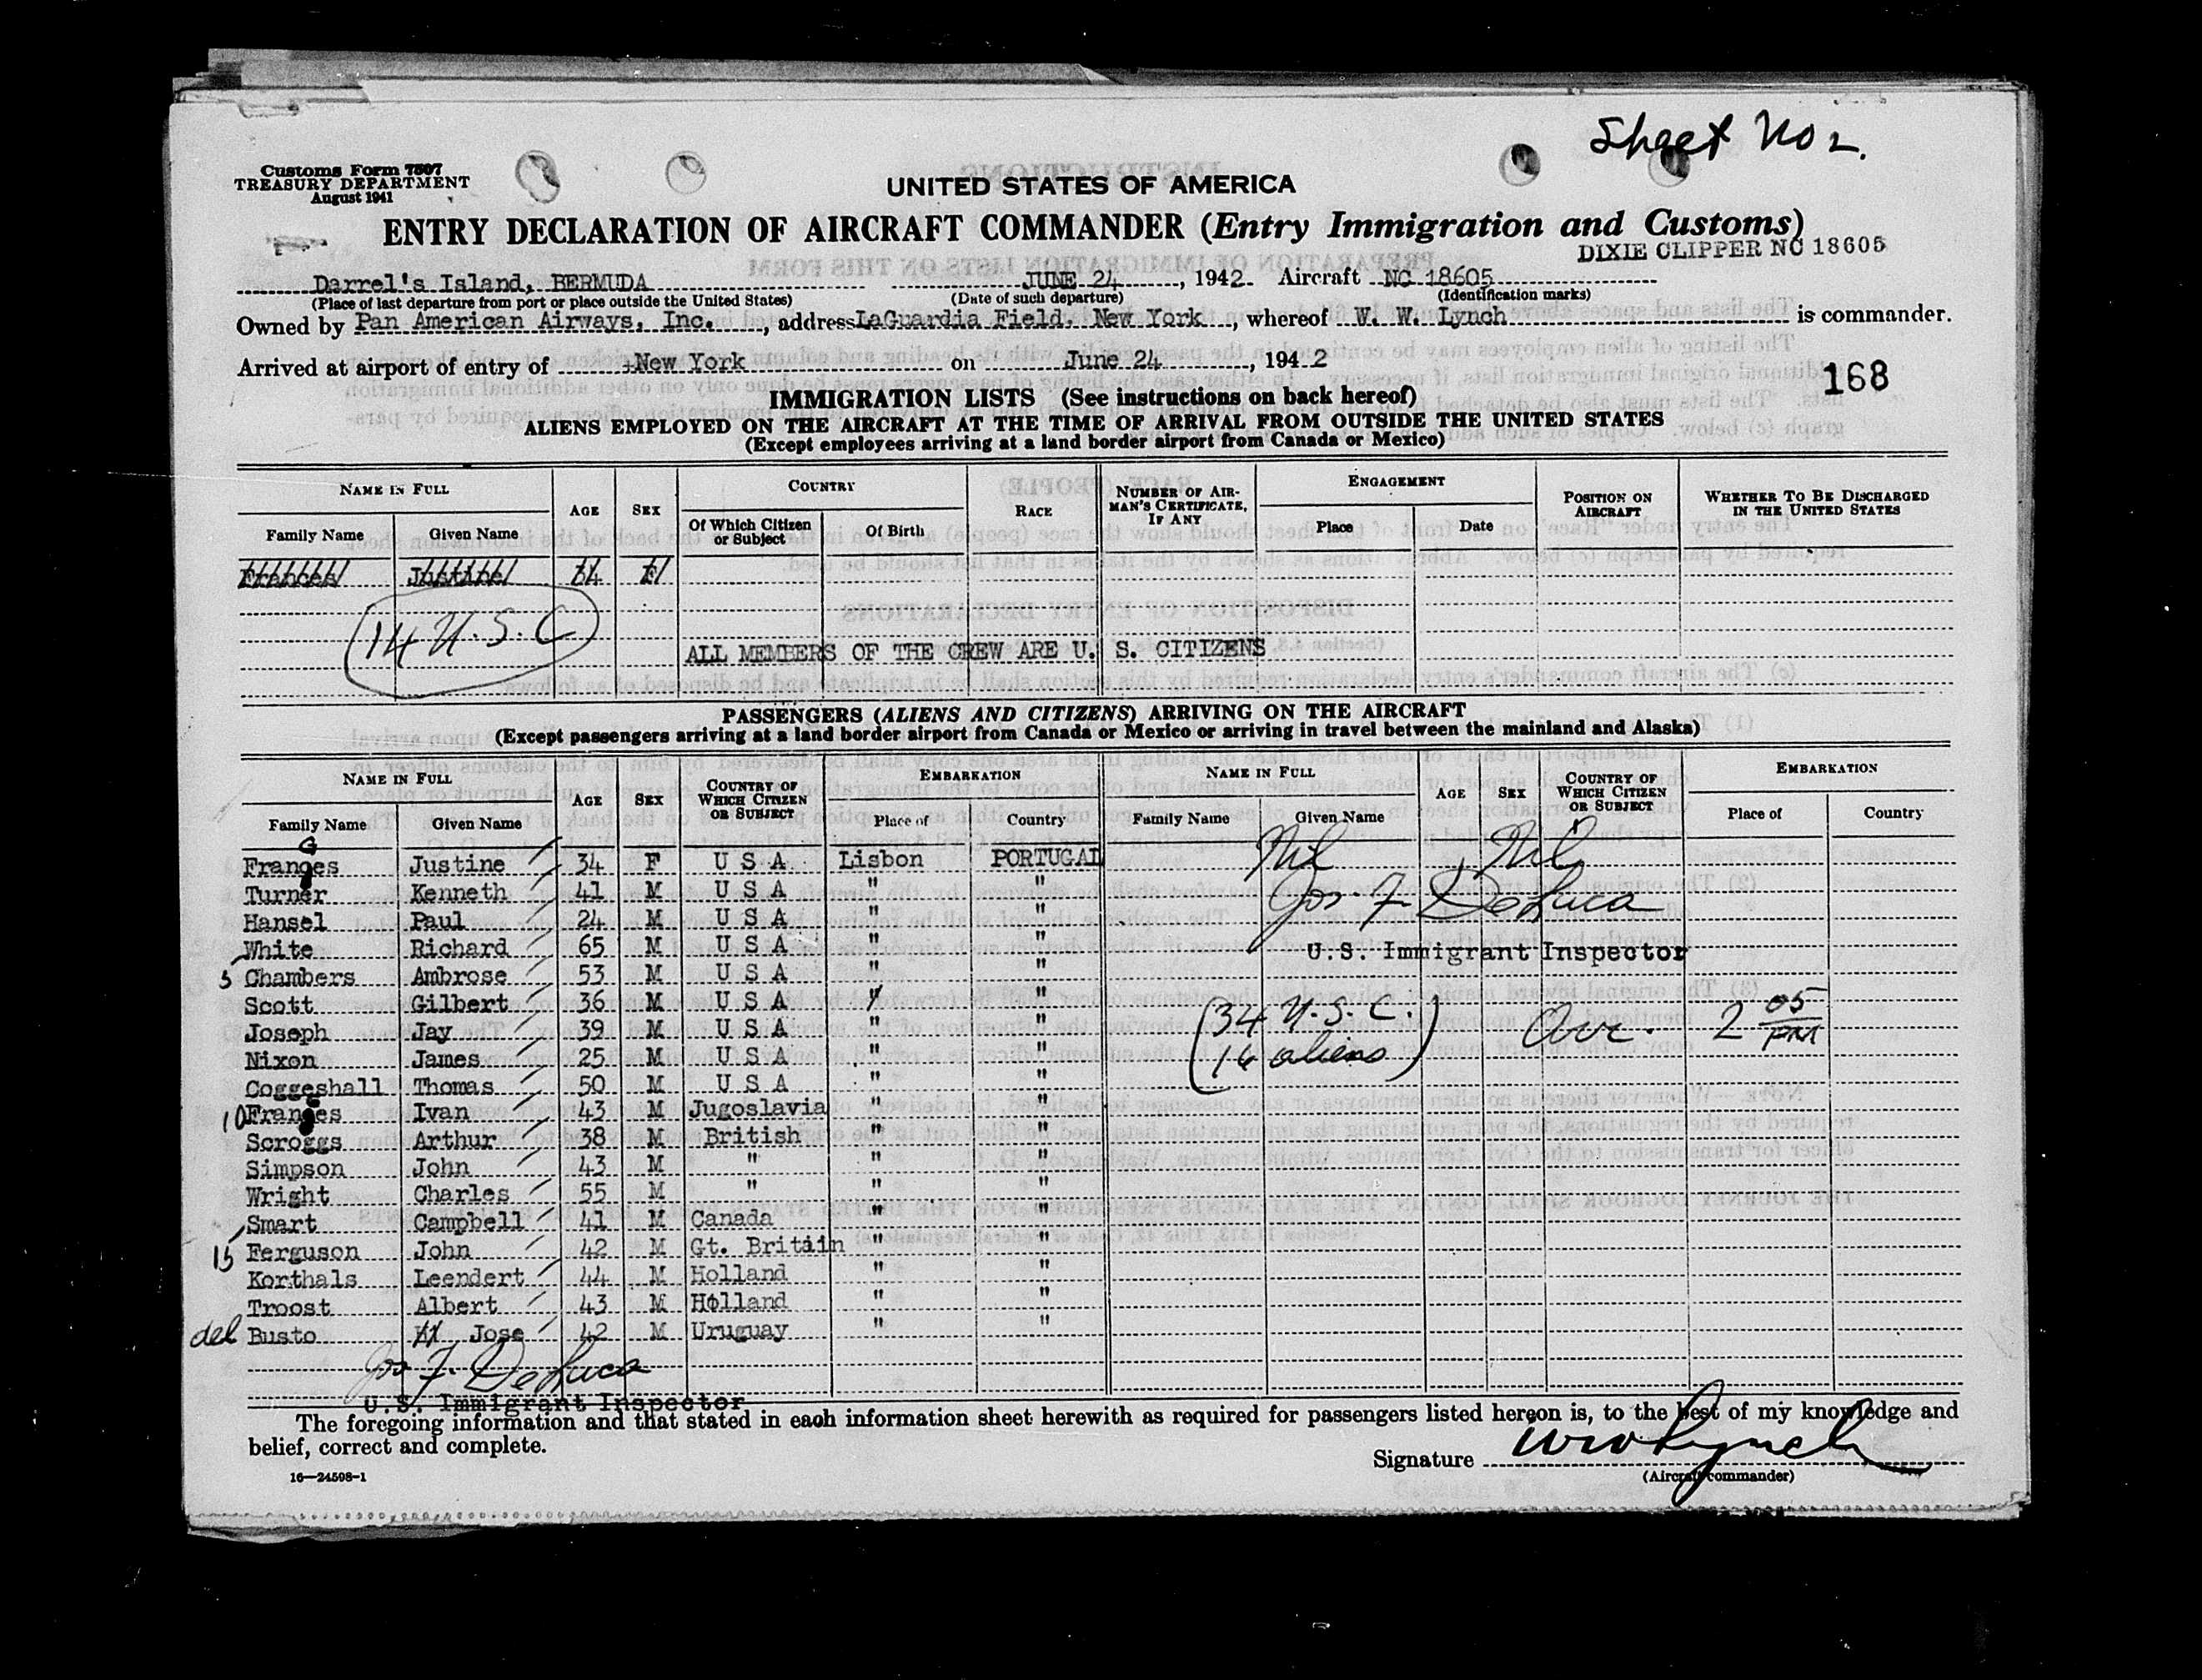 Sheet No 2.
Customs Form 7507
TREASURY DEPARTMENT
August 1941
UNITED STATES OF AMERICA
ENTRY DECLARATION OF AIRCRAFT COMMANDER (Entry Immigration and Customs)
DIXIE CLIPPER NC 18605
Darrel's Island, BERMUDA JUNE 24, 1942 Aircraft NC 18605
(Place of last departure from port or place outside the United States) (Date of such departure) (Identification marks)
Owned by Pan American Airways, Inc., address LaGuardia Field, New York, whereof W. W. Lynch is commander.
Arrived at airport of entry of New York on June 24, 1942
168
IMMIGRATION LISTS (See instructions on back hereof)
ALIENS EMPLOYED ON THE AIRCRAFT AT THE TIME OF ARRIVAL FROM OUTSIDE THE UNITED STATES
(Except employees arriving at a land border airport from Canada or Mexico)
NAME IN FULL AGE SEX COUNTRY RACE NUMBER OF AIRMAN'S CERTIFICATE, IF ANY ENGAGEMENT POSITION ON AIRCRAFT WHETHER TO BE DISCHARGED IN THE UNITED STATES
Family Name Given Name Of Which Citizen or Subject Of Birth Place Date
Frances Justine 34 F
14 U.S.C
ALL MEMBERS OF THE CREW ARE U. S. CITIZENS
PASSENGERS (ALIENS AND CITIZENS) ARRIVING ON THE AIRCRAFT
(Except passengers arriving at a land border airport from Canada or Mexico or arriving in travel between the mainland and Alaska)
NAME IN FULL AGE SEX COUNTRY OF WHICH CITIZEN OR SUBJECT EMBARKATION NAME IN FULL AGE SEX COUNTRY OF WHICH CITIZEN OR SUBJECT EMBARKATION
Family Name Given Name Place of Country Family Name Given Name Place of Country
G
Franges Justine 34 F U S A Lisbon PORTUGAL Nil Nil
Turner Kenneth 41 M U S A " " Jos. F. DeLuca
Hansel Paul 24 M U S A " "
White Richard 65 M U S A " " U.S. Immigrant Inspector
5 Chambers Ambrose 53 M U S A " "
Scott Gilbert 36 M U S A " " (34 U.S.C. Arr. 2 05 PM
Joseph Jay 39 M U S A " "
Nixon James 25 M U S A " " 16 aliens)
Coggeshall Thomas 50 M U S A " "
10 Franges Ivan 43 M Jugoslavia " "
Scroggs Arthur 38 M British " "
Simpson John 43 M " " "
Wright Charles 55 M " " "
Smart Campbell 41 M Canada " "
15 Ferguson John 42 M Gt. Britain " "
Korthals Leendert 44 M Holland " "
Troost Albert 43 M Holland " "
del Busto Jose 42 M Uruguay " "
Jos F. DeLuca
U.S. Immigrant Inspector
The foregoing information and that stated in each information sheet herewith as required for passengers listed hereon is, to the best of my knowledge and
belief, correct and complete.
Signature WW Lynch
16—24598-1 (Aircraft commander)